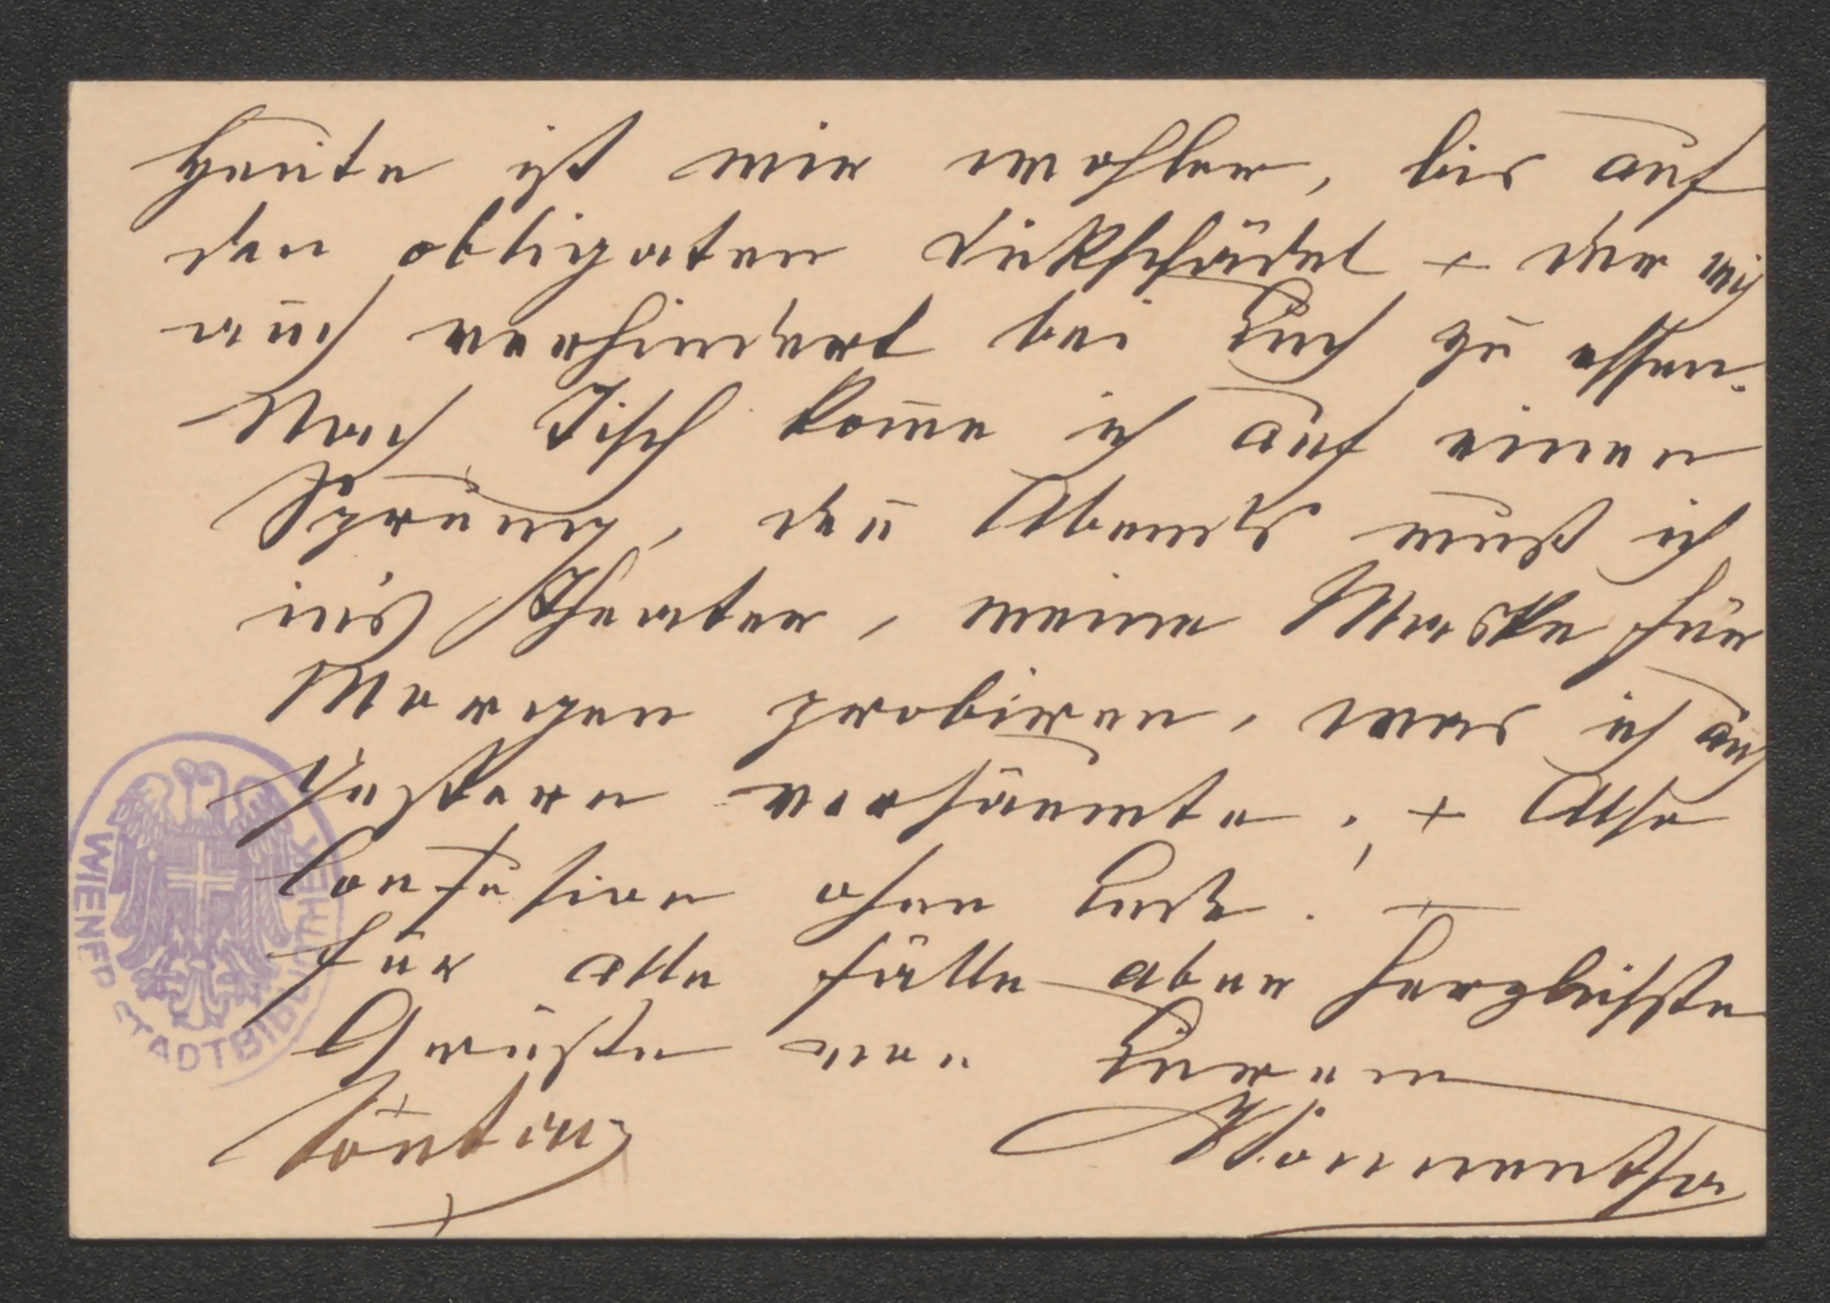 Heute ist mir wohler, bis auf
den obligaten Dickschädel + der mich
auch verhindert bei Euch zu essen.
Nach Tisch kome ich auf einen
Sprung, den Abends muß ich
in's Theater, meine Maske für
Morgen probiren, was ich auch
gestern versäumte; + Also
Confusion ohne Ende. —
Für alle Fälle aber herzlichste
Grüße von Eurem
Sontag
WIENER STADTBIBLIOTHEK